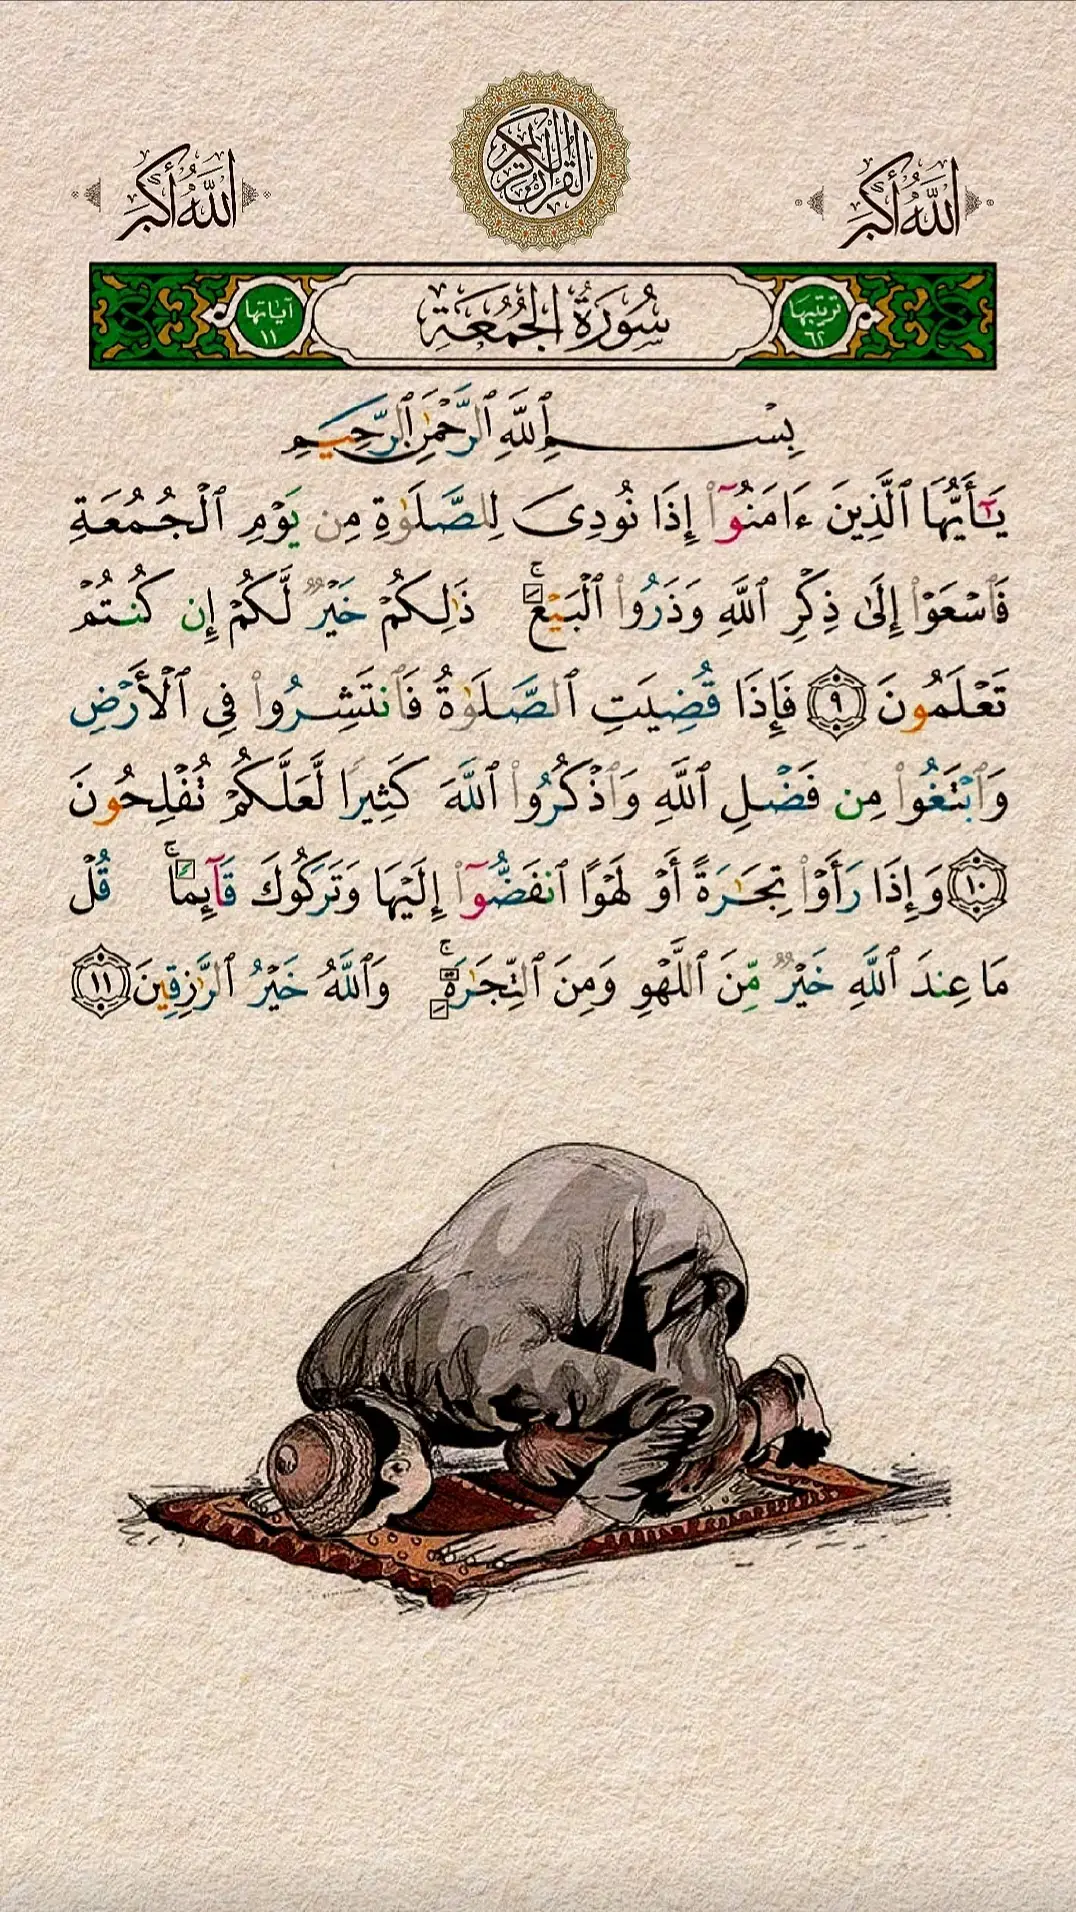 القرآن الكريم
الله أكبر
الله أكبر
ترتيبها ٦٢
سُورَةُ الجُمُعَةِ
آياتها ١١
بِسْمِ ٱللَّهِ ٱلرَّحْمَٰنِ ٱلرَّحِيمِ
يَـٰٓأَيُّهَا ٱلَّذِينَ ءَامَنُوٓا۟ إِذَا نُودِىَ لِلصَّلَوٰةِ مِن يَوْمِ ٱلْجُمُعَةِ
فَٱسْعَوْا۟ إِلَىٰ ذِكْرِ ٱللَّهِ وَذَرُوا۟ ٱلْبَيْعَ ۚ ذَٰلِكُمْ خَيْرٌ لَّكُمْ إِن كُنتُمْ
تَعْلَمُونَ ٩ فَإِذَا قُضِيَتِ ٱلصَّلَوٰةُ فَٱنتَشِرُوا۟ فِى ٱلْأَرْضِ
وَٱبْتَغُوا۟ مِن فَضْلِ ٱللَّهِ وَٱذْكُرُوا۟ ٱللَّهَ كَثِيرًا لَّعَلَّكُمْ تُفْلِحُونَ
١٠ وَإِذَا رَأَوْا۟ تِجَـٰرَةً أَوْ لَهْوًا ٱنفَضُّوٓا۟ إِلَيْهَا وَتَرَكُوكَ قَآئِمًا ۚ قُلْ
مَا عِندَ ٱللَّهِ خَيْرٌ مِّنَ ٱللَّهْوِ وَمِنَ ٱلتِّجَـٰرَةِ ۚ وَٱللَّهُ خَيْرُ ٱلرَّٰزِقِينَ ١١